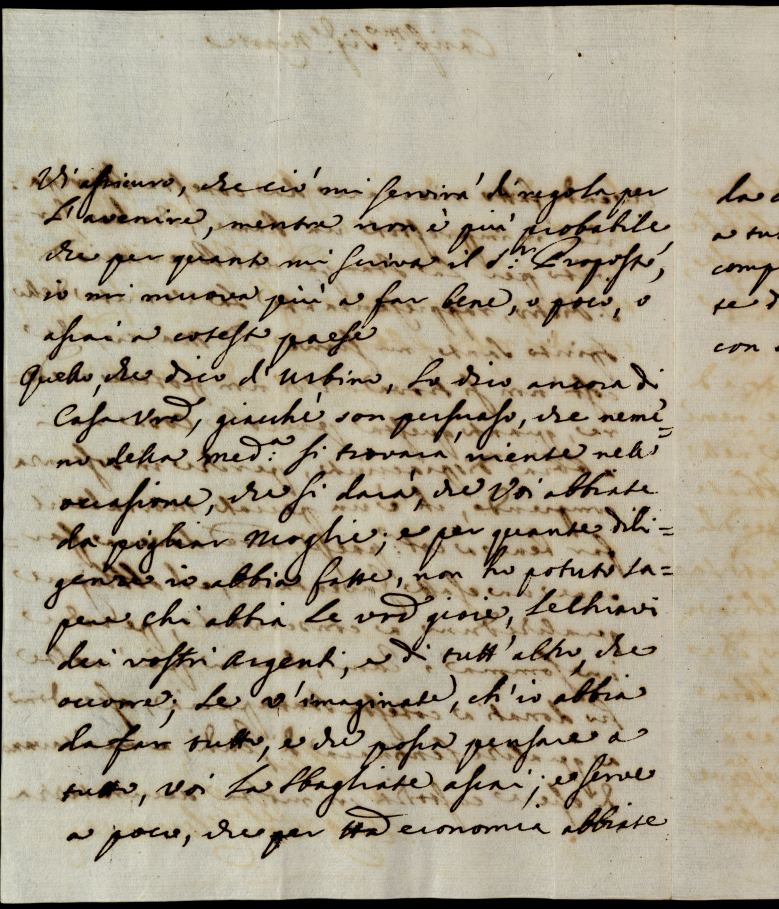 Vi assicuro, che ciò mi servirà di regola per
L'avenire, mentre non è più probabile
che per quanto mi scriva il S.r Proposto,
io mi muova più a far bene, o poco, o
assai a cotesto paese
Quello, che dico d'Urbino, Lo dico ancora di
Casa vrã, giacchè son persuaso, che nemẽ=
no della med.a si trovarà niente nell'
occasione, che si darà, che Voi abbiate
da pigliar Moglie; e per quante dili=
genze io abbia fatte, non ho potuto sa=
pere chi abbia Le vrẽ gioie, Le Chiavi
dei vostri Argenti, e di tutt'altro, che
occorre; Se v'imaginate, ch'io abbia
da far tutto, e che possa pensare a
tutto, voi La sbagliate assai; e serve
a poco, che per ttã economia abbiate
da
a tut
comp
te d
con